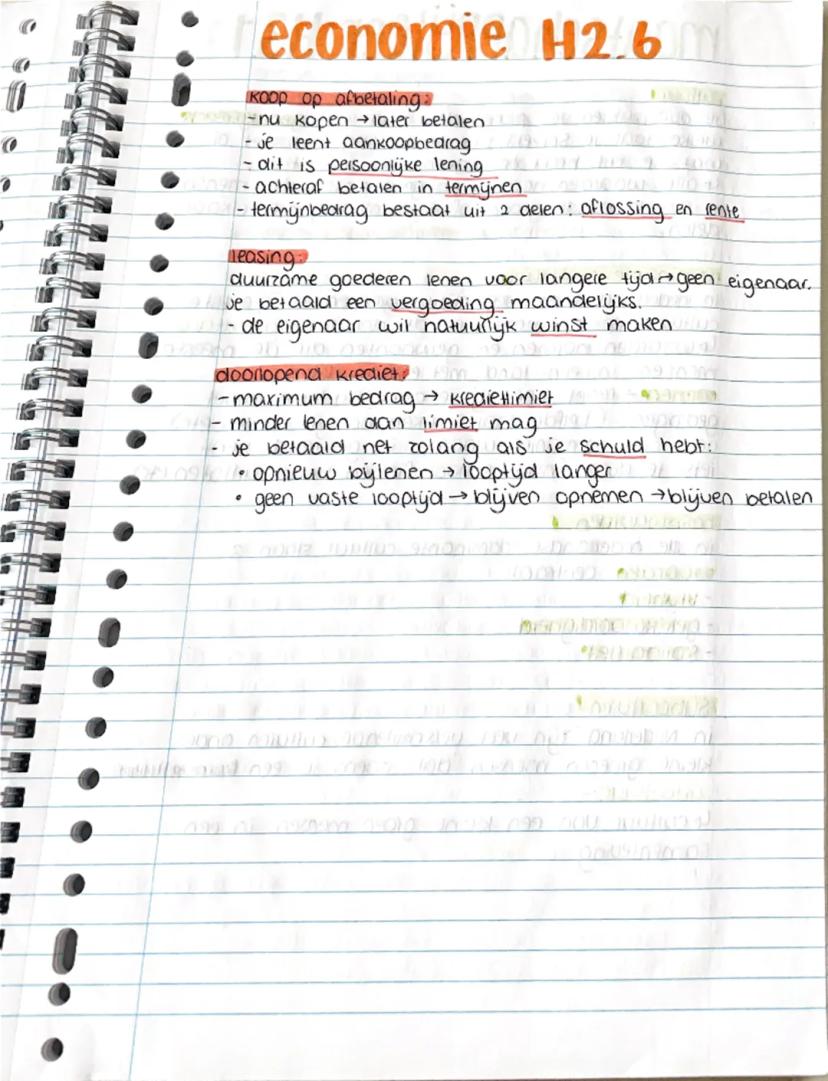 economie H2.6
koop op afbetaling:
- nu kopen → later betalen
- je leent aankoopbedrag
- dit is persoonlijke lening
- achteraf betalen in termijnen
- termijnbedrag bestaat uit 2 delen: aflossing en rente
leasing:
duurzame goederen lenen voor langere tijd → geen eigenaar.
je betaald een vergoeding maandelijks.
- de eigenaar wil natuurlijk winst maken
doorlopend krediet:
- maximum bedrag → kredietlimiet
- minder lenen dan limiet mag
- je betaald net zolang als je schuld hebt:
• opnieuw bijlenen → looptijd langer
• geen vaste looptijd → blijven opnemen → blijven betalen